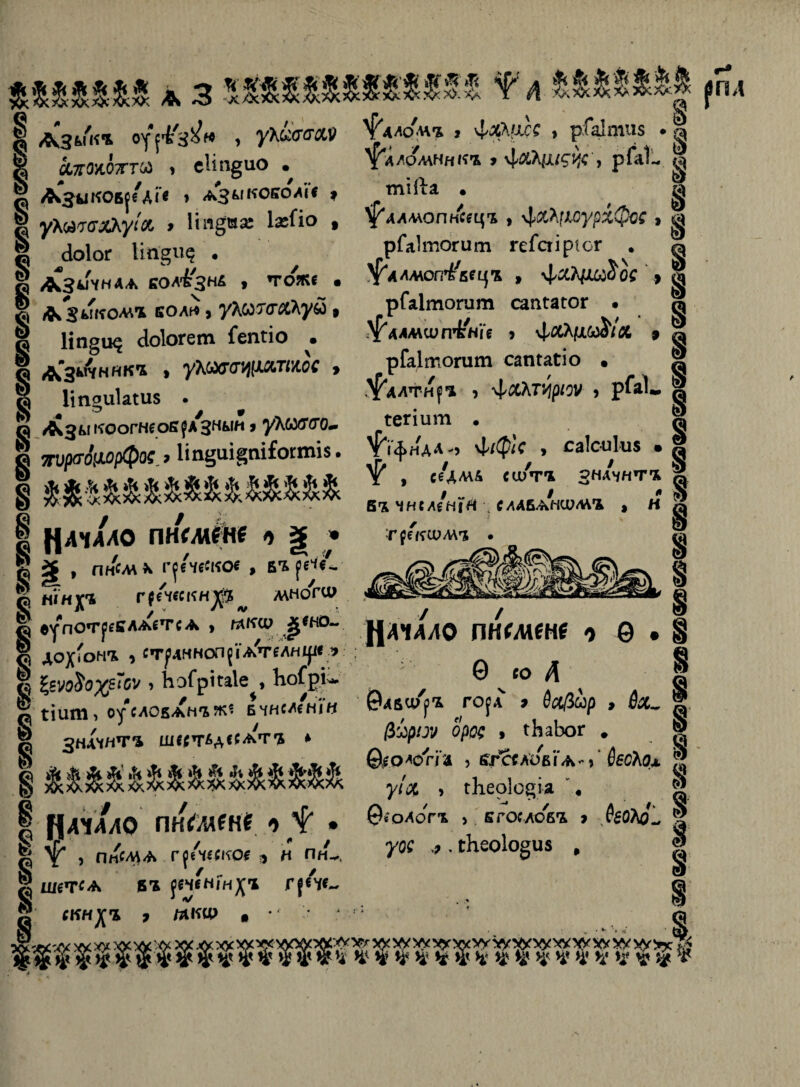 Ѧ З Ѱ А рпд
Ѧзы́къ ѹрѣ́зѹю , γλῶσσαν
ἀποκόπτω , elinguo .
Ѧзыковреді́е , ѧзыкоболі́е ,
γλωτσαλγία , linguæ læsio ,
dolor linguę .
Ѧзы́чнаѧ болѣ́знь , то́же .
Ѧзы́комъ болю̀ , γλωτσαλγῶ ,
linguę dolorem sentio .
Ѧзы́чникъ , γλωσσηματικὸς ,
lingulatus .
Ѧзыкоогнеобра́зный , γλωσσο-
πυρσόμορφος , linguigniformis .
Нача́ло пи́смене ѡ Ѯ .
Ѯ , пи́смѧ гре́ческое , въ рече́-
ніихъ гре́ческихъ мно́гѡ
ѹпотреблѧ́етсѧ , ꙗ́кѡ ѯено-
дохі́онъ , страннопрїѧ́телище ,
ξενοδοχεῖον , hospitale , hospi-
tium , ѹ словѧ́нъ же вчисле́нїи
зна́читъ шестьдесѧ́тъ .
Нача́ло пи́смене ѡ Ѱ .
Ѱ , пи́смѧ гре́ческое , и пи́-
шетсѧ въ рече́нїихъ гре́че-
скихъ , ꙗ́кѡ .
Ѱало́мъ , ψαλμὸς , psalmus .
Ѱало́мникъ , ψαλμιςὴς , psal-
mista .
Ѱалмопи́сецъ , ψαλμογράφος ,
psalmorum rescriptor .
Ѱалмопѣ́вецъ , ψαλμῳδὸς ,
psalmorum cantator .
Ѱалмѡпѣ́нїе , ψαλμῳδία ,
psalmorum cantatio .
Ѱалти́рь , ψαλτήριον , psal-
terium .
Ѱїфи́да , ψίφις , calculus .
Ѱ , се́дмь сѡ́тъ зна́читъ
въ числе́нїи славѧ́нѡмъ , и
гре́кѡмъ .
Нача́ло пи́смене ѡ Ѳ .
Ѳ со А
Ѳавѡ́ръ гора̀ , θαβὼρ , θα-
βώριον ὄρος , thabor .
Ѳеоло́гіа , бг҃осло́вїѧ , θεολο-
γία , theologia .
Ѳеоло́гъ , богосло́въ , θεολό-
γος , theologus ,